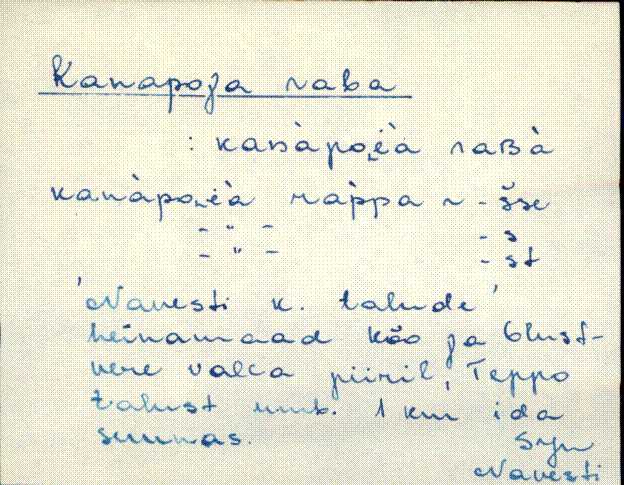 Kanapoja raba
: kanàpo̬i̯à raʙà
kanàpo̬i̯à ràppa ~ -šse
- " - - s
- " - - st
'Navesti k. talude'
heinamaad Kõo ja Olust-
vere valla piiril, Teppo
talust umb. 1 km ida
suunas.
SJn
Navesti